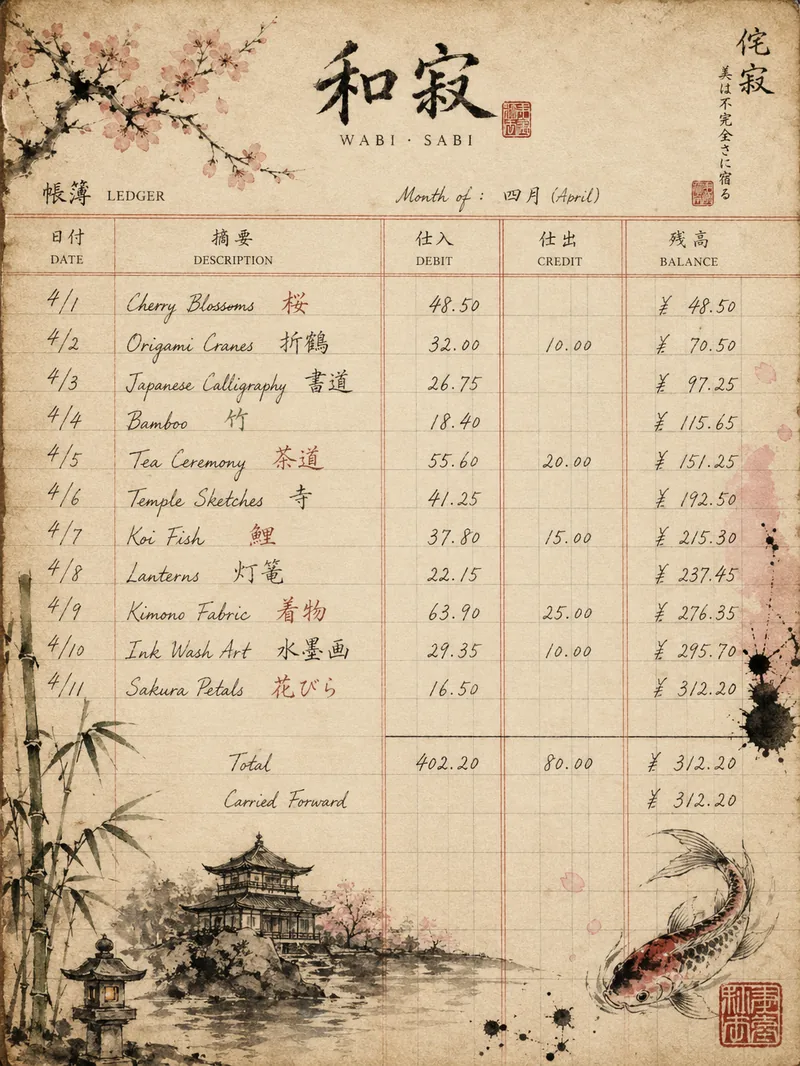 和寂
WABI · SABI
侘寂
美は不完全さに宿る
帳簿 LEDGER Month of : 四月 (April)
日付 摘要 仕入 仕出 残高
DATE DESCRIPTION DEBIT CREDIT BALANCE
4/1 Cherry Blossoms 桜 48.50 ¥ 48.50
4/2 Origami Cranes 折鶴 32.00 10.00 ¥ 70.50
4/3 Japanese Calligraphy 書道 26.75 ¥ 97.25
4/4 Bamboo 竹 18.40 ¥ 115.65
4/5 Tea Ceremony 茶道 55.60 20.00 ¥ 151.25
4/6 Temple Sketches 寺 41.25 ¥ 192.50
4/7 Koi Fish 鯉 37.80 15.00 ¥ 215.30
4/8 Lanterns 灯篭 22.15 ¥ 237.45
4/9 Kimono Fabric 着物 63.90 25.00 ¥ 276.35
4/10 Ink Wash Art 水墨画 29.35 10.00 ¥ 295.70
4/11 Sakura Petals 花びら 16.50 ¥ 312.20
Total 402.20 80.00 ¥ 312.20
Carried Forward ¥ 312.20